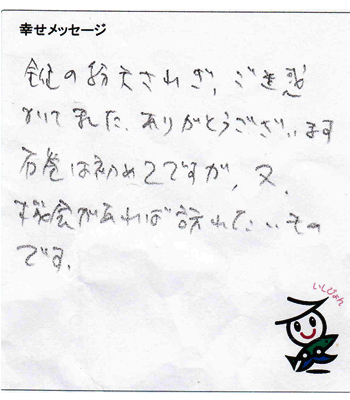 幸せメッセージ
鍵の紛失されぎ、ご迷惑
かけました、ありがとうございます
石巻は初めてですが、又、
機会があれば訪れたいもの
です。
いしぴょん